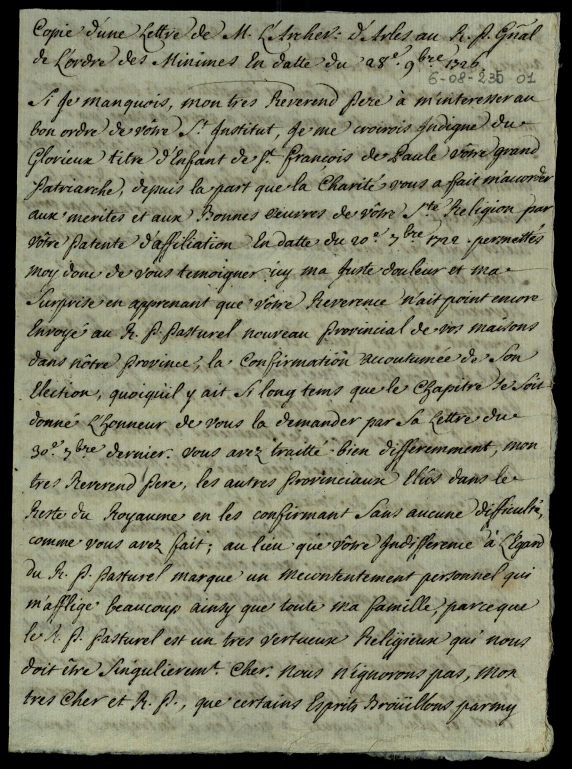 Copie d'une Lettre de M. L'Archev. d'Arles au R. P. Gñal
de L'ordre des Minimes En datte du 28e. 9bre 1726.
6-08-235 01
Si Je manquois, mon tres Reverend Pere à m'interesser au
bon ordre de vôtre St. Institut, Je me croirois Indigne du
Glorieux titre d'Enfant de St. François de Paule vôtre grand
Patriarche, depuis la part que la Charité vous a fait m'accorder
aux merites et aux Bonnes œuvres de vôtre Ste Religion par
vôtre Patente d'affiliation En datte du 20e. 7bre 1722. permettés
moy donc de vous temoigner icy ma Juste douleur et ma
Surprise en apprenant que vôtre Reverence n'ait point encore
Envoyé au R. P. Pasturel nouveau Provincial de vos maisons
dans nôtre Province, la Confirmation accoutumée de Son
Election, quoiqu'il y ait Si long tems que le Chapitre Se Soit
donné L'honneur de vous la demander par Sa Lettre du
30e. 7bre dernier. vous avez traitté bien differemment, mon
tres Reverend Pere, les autres Provinciaux Elûs dans le
Reste du Royaume en les confirmant Sans aucune difficulté,
comme vous avez fait; au lieu que vôtre Indifference à L'Egard
du R. P. Pasturel marque un mecontentement personnel qui
m'afflige beaucoup ainsy que toute ma famille, parceque
le R. P. Pasturel est un tres vertueux Religieux qui nous
doit être Singulieremt. Cher. Nous n'ignorons pas, Mon
tres Cher et R. P., que certains Esprits Broüillons parmy